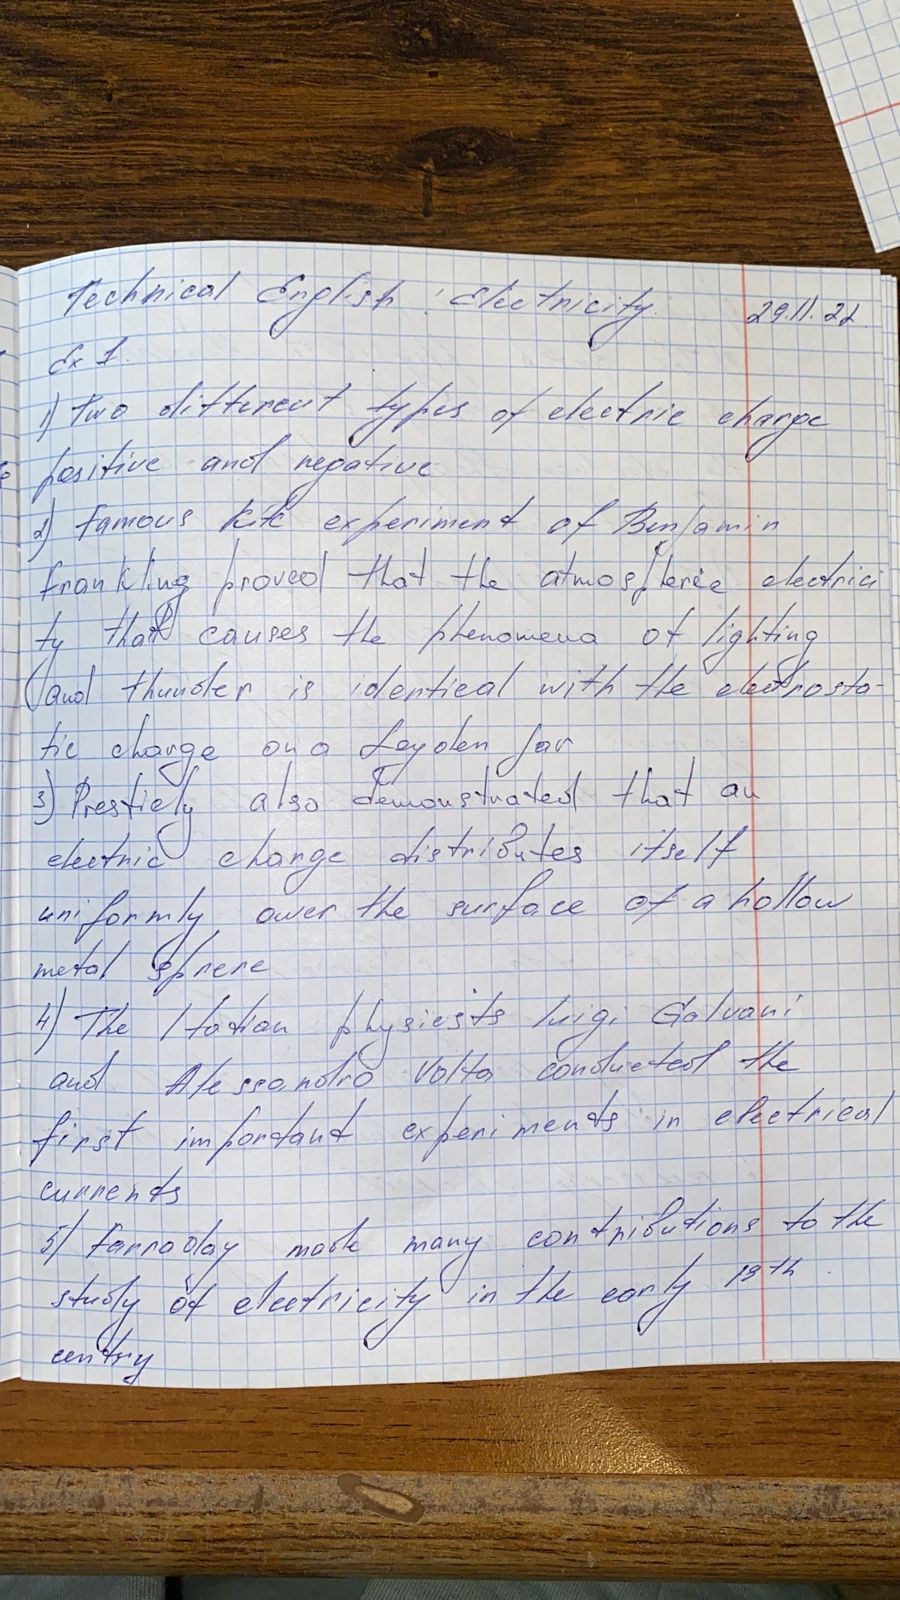 Technical English: Electricity. 29.11.22
Ex 1.
1) Two different types of electric charge
positive and negative
2) famous kite experiment of Benjamin
Frankling proved that the atmospheric electrici
ty that causes the phenomena of lighting
and thunder is identical with the electrosta-
tic charge on a Leyden Jar
3) Prestiely also demonstrated that an
electric charge distributes itself
uniformly ower the surface of a hollow
metal sphere
4) The Italian physicists Luigi Galvani
and Alessandro Volta conducted the
first important experiments in electrical
currents
5) Farraday made many contributions to the
study of electricity in the early 19th
centry